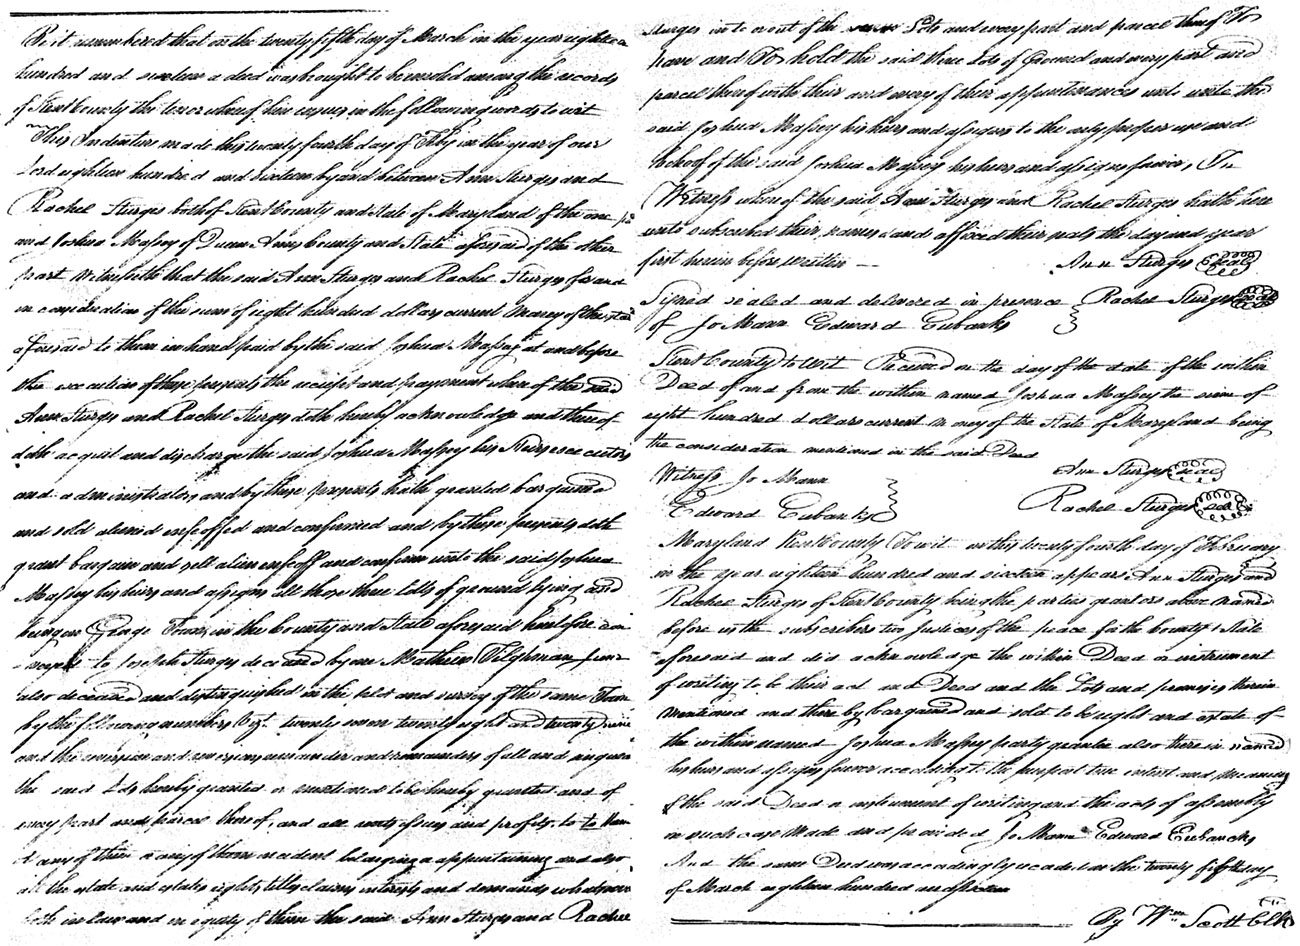 Be it remembered that on the twenty fifth day of March in the year eighteen
hundred and sixteen a deed was brought to be recorded among the records
of Kent County the tenor whereof here ensues in the following words to wit
This Indenture made this twenty fourth day of Feby in the year of our
Lord eighteen hundred and sixteen by and between Ann Sturges and
Rachel Sturges both of Kent County and State of Maryland of the one pt
and Joshua Massey of Queen Anns County and State aforesaid of the other
part Witnesseth that the said Ann Sturges and Rachel Sturges for and
in consideration of the sum of eight hundred dollars current money of the state
aforesaid to them in hand paid by the said Joshua Massey at and before
the execution of these presents the receipt and payment where of the said
Ann Sturges and Rachel Sturges doth hereby acknowledge and thereof
doth acquit and discharge the said Joshua Massey his Heirs executors
and administrators and by these presents hath granted bargained
and sold aliened enfeoffed and confirmed and by these presents doth
grant bargain and sell alien enfeoff and confirm unto the said Joshua
Massey his heirs and assigns all those three lotts of ground lying and
being in George Town in the County and State aforesaid heretofore con
-veyed to Joseph Sturges deceased by one Mathew Tilghman
also deceased and distinguished in the plot and survey of the same Town
by the following numbers twenty seven twenty eight and twenty nine
and the reversion and reversions remainder and remainders of all and singular
the said Lots hereby granted or mentioned to be hereby granted and of
every part and parcel thereof, and all rents issues and profits to them
or any of them or any of them incident belonging or appertaining and also
all the estate and estates rights titles claims interests and demands whatsoever
both in law and in equity of them the said Ann Sturges and Rachel
Sturges in to or out of the same Lots and every part and parcel thereof To
have and To hold the said three Lots of Ground and every part and
parcel thereof with their and every of their appurtenances unto unto the
said Joshua Massey his heirs and assigns to the only proper use and
behoof of the said Joshua Massey his heirs and assigns forever, In
Witness where of the said Ann Sturges and Rachel Sturges hath here
unto subscribed their names and affixed their seals the day and year
first herein before written
Ann Sturges Seal
Signed sealed and delivered in presence Rachel Sturges seal
of Jo Mann Edward Eubanks
Kent County to Wit Received on the day of the date of the within
Deed of and from the within named Joshua Massey the sum of
eight hundred dollars current money of the State of Maryland being
the consideration mentioned in the said Deed
Ann Sturges seal
Witness Jo Mann
Rachel Sturges seal
Edward Eubanks
Maryland Kent County To wit on this twenty fourth day of February
in the year eighteen hundred and sixteen appears Ann Sturges and
Rachel Sturges of Kent County being the parties grantors above named
before us the subscribers two Justices of the peace for the County & State
aforesaid and did acknowledge the within Deed or instrument
of writing to be their act and Deed and the Lots and premises therein
mentioned and there by bargained and sold to be right and estate of
the within named Joshua Massey party grantee also therein named
his heirs and assigns forever according to the purport true intent and meaning
of the said Deed or instrument of writing and the acts of assembly
in such case made and provided Jo Mann Edward Eubanks
And the same Deed was accordingly recorded on the twenty fifth day
of March eighteen hundred and sixteen
By Wm Scott Clk